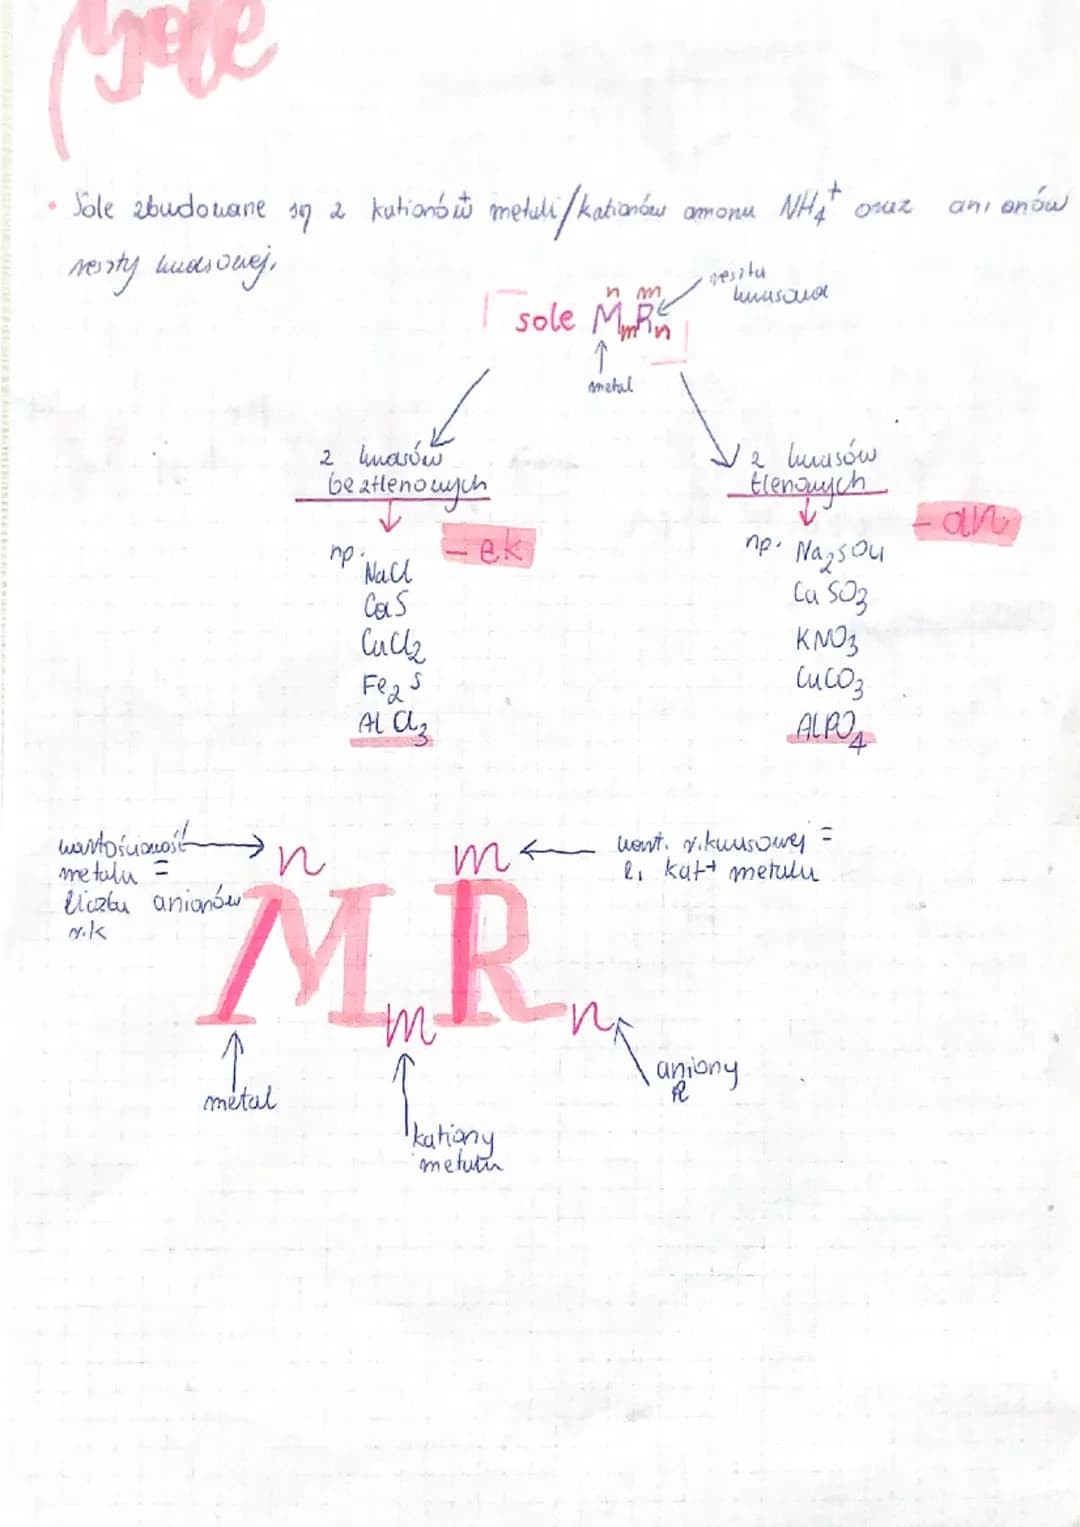 Sole
• Sole zbudowane są z kationów metali/kationów amonu NH₄⁺ oraz anionów
reszty kwasowej.
reszta
kwasowa
n m
sole MₘRₙ
metal
z kwasów
beztlenowych
- ek
np.
NaCl
CaS
CuCl₂
Fe₂S
AlCl₃
z kwasów
tlenowych
- an
np. Na₂SO₄
CaSO₃
KNO₃
CuCO₃
AlPO₄
wartościowość
metalu =
liczba anionów
r.k
n m
wart. r.kwasowej =
l. kat+ metalu
MₘRₙ
metal
kationy
metalu
aniony
R